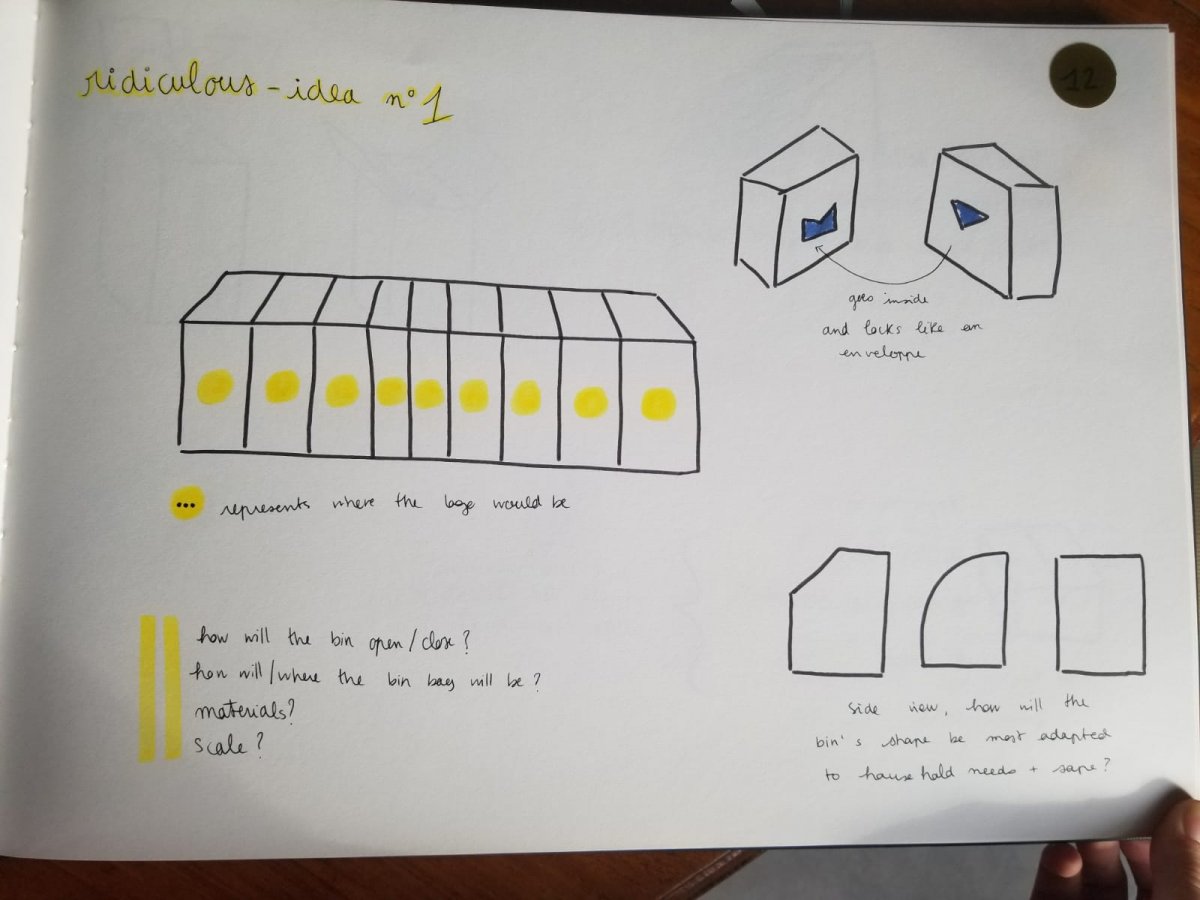 ridiculous-idea n°1
12
goes inside
and locks like an
enveloppe
... represents where the logo would be
how will the bin open/close?
how will/where the bin bags will be?
materials?
scale?
side view, how will the
bin's shape be most adapted
to household needs +